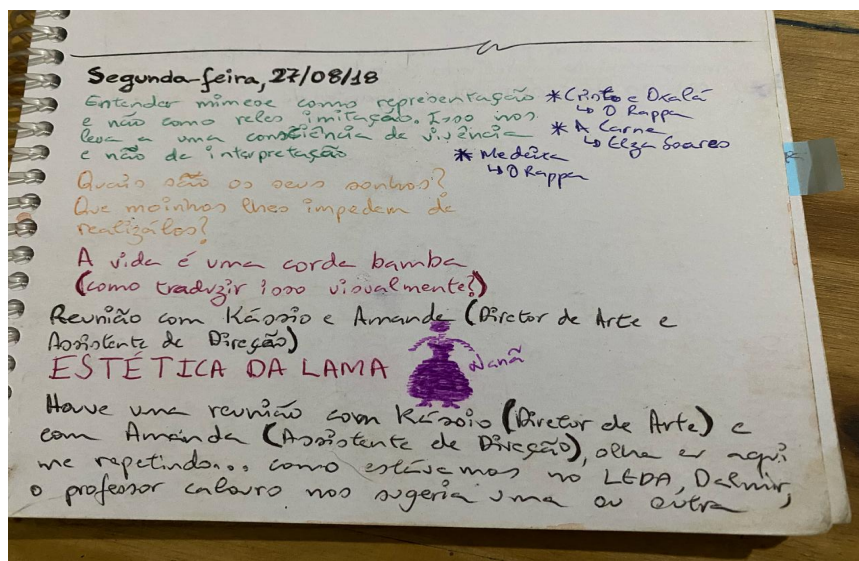 Segunda-feira, 27/08/18
Entender mimese como representação
e não como reles imitação. Isso nos
leva a uma consciência de vivência
e não de interpretação
*Cristo e Oxalá
↳ O Rappa
*A Carne
↳ Elza Soares
*Me deixa
↳ O Rappa
Quais são os seus sonhos?
Que moinhos lhes impedem de
realizá-los?
A vida é uma corda bamba
(como traduzir isso visualmente?)
Reunião com Kássio e Amanda (Diretor de Arte e
Assistente de Direção)
ESTÉTICA DA LAMA
Nanã
Houve uma reunião com Kássio (Diretor de Arte) e
com Amanda (Assistente de Direção), olha eu aqui
me repetindo... como estávamos no LEDA, Dalmir,
o professor calouro nos sugeria uma ou outra